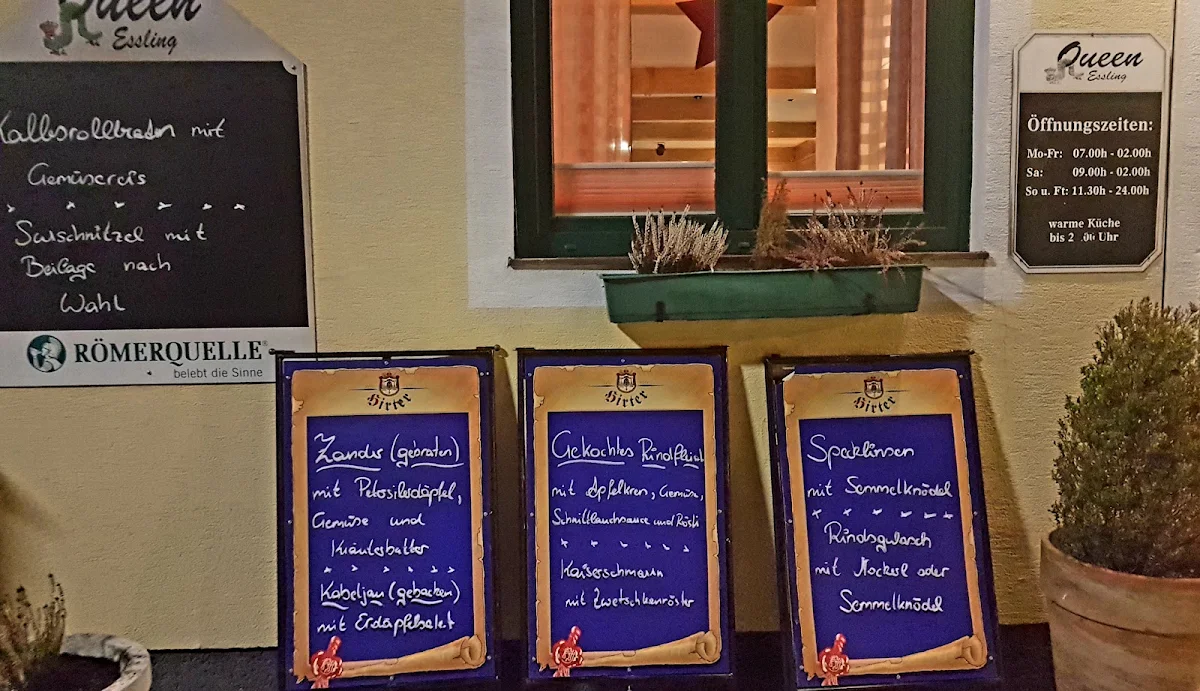 Queen
Essling
Kalbsrollbraten mit
Gemüsereis
Surschnitzel mit
Beilage nach
Wahl
RÖMERQUELLE®
belebt die Sinne
Queen
Essling
Öffnungszeiten:
Mo-Fr: 07.00h - 02.00h
Sa: 09.00h - 02.00h
So u. Ft: 11.30h - 24.00h
warme Küche
bis Uhr
Hirter
Zander (gebraten)
mit Petersilerdäpfel,
Gemüse und
Kräuterbutter
Kabeljau (gebacken)
mit Erdäpfelsalat
Hirter
Gekochtes Rindfleisch
mit Apfelkren, Gemüse,
Schnittlauchsauce und Rösti
Kaiserschmarrn
mit Zwetschkenröster
Hirter
Specklinsen
mit Semmelknödel
Rindsgulasch
mit Nockerl oder
Semmelknödel